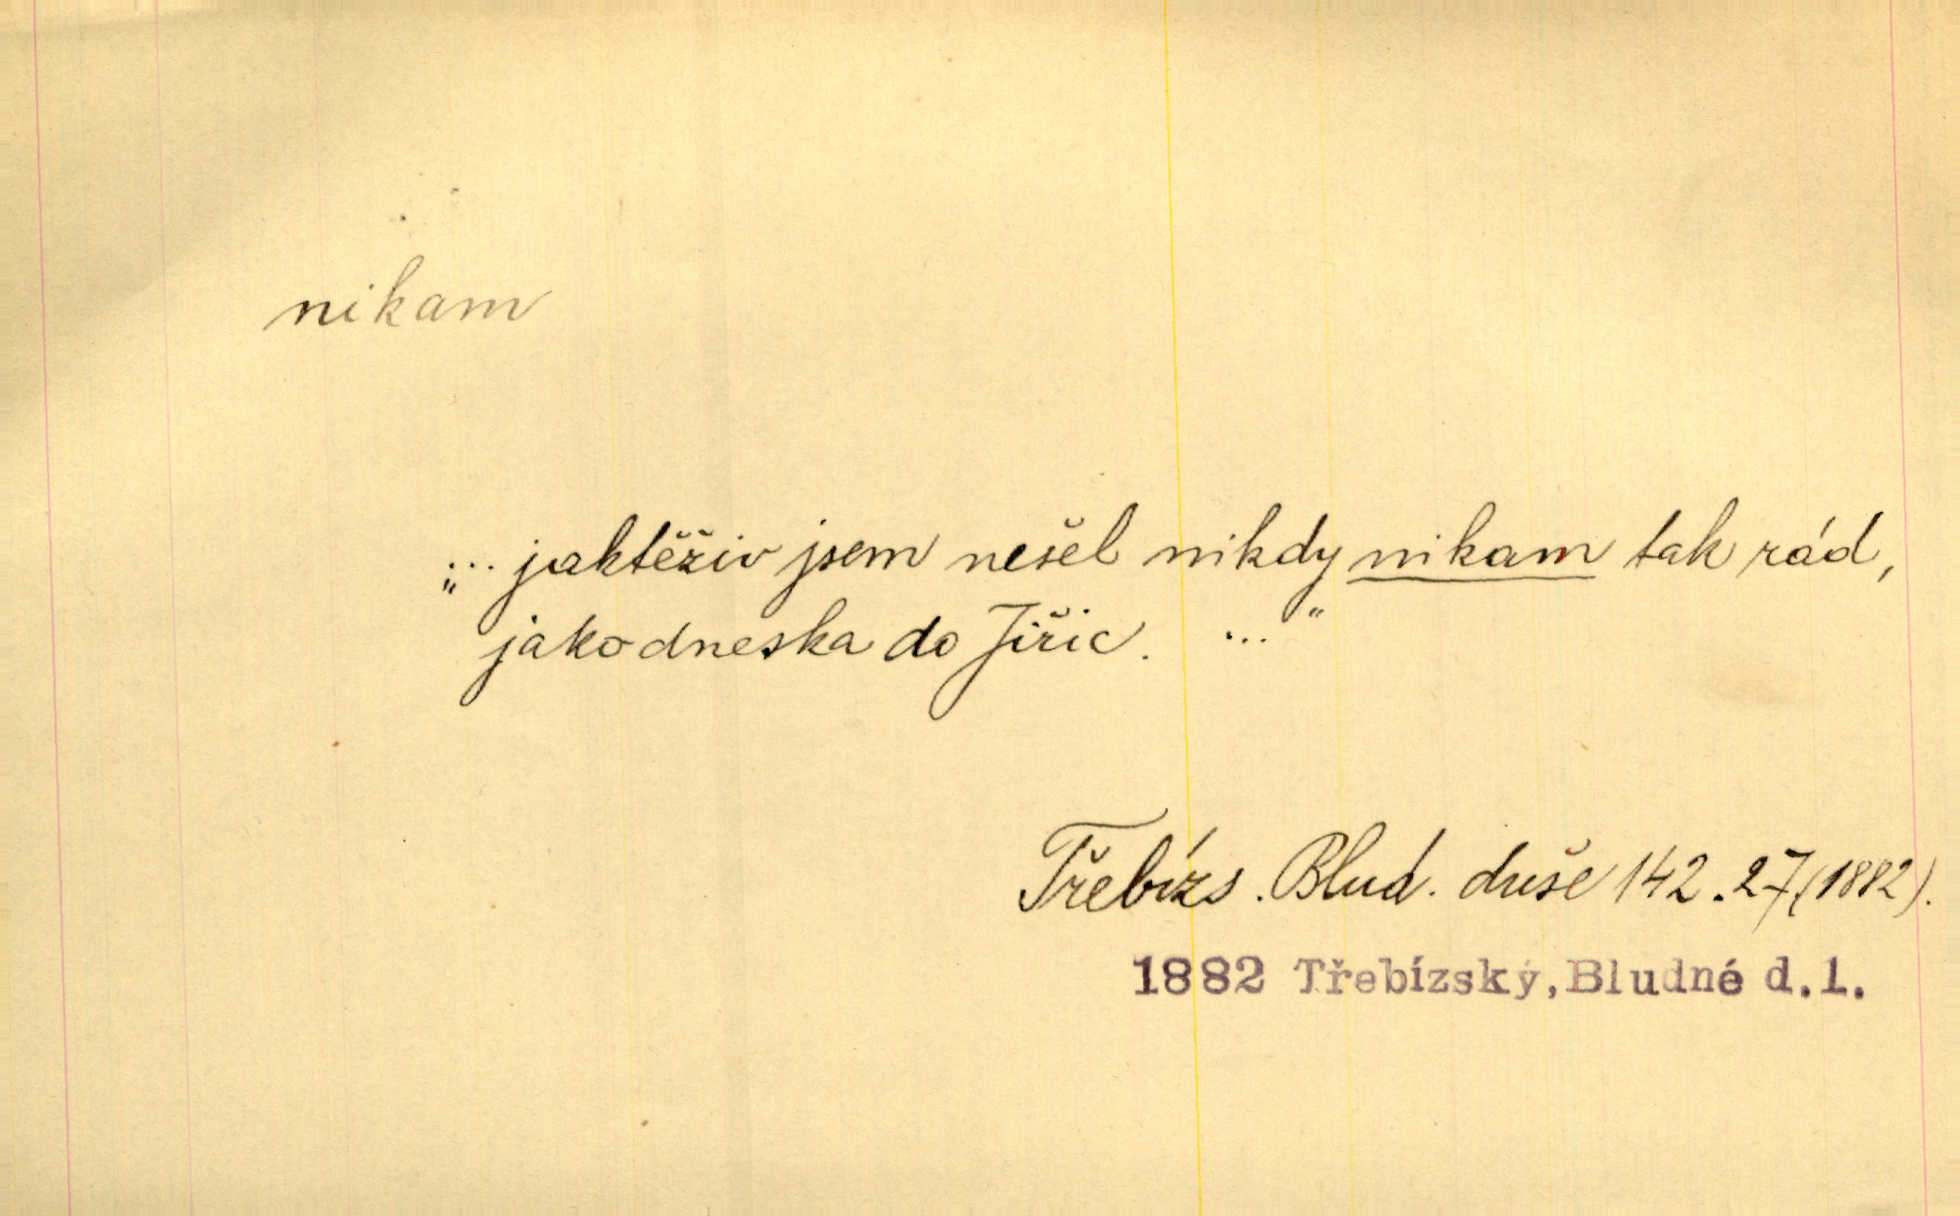 nikam
„... jaktěživ jsem nešel nikdy nikam tak rád,
jako dneska do Jiřic. ..."
Třebízs. Blud. duše 142.27 (1882).
1882 Třebízský, Bludné d.1.